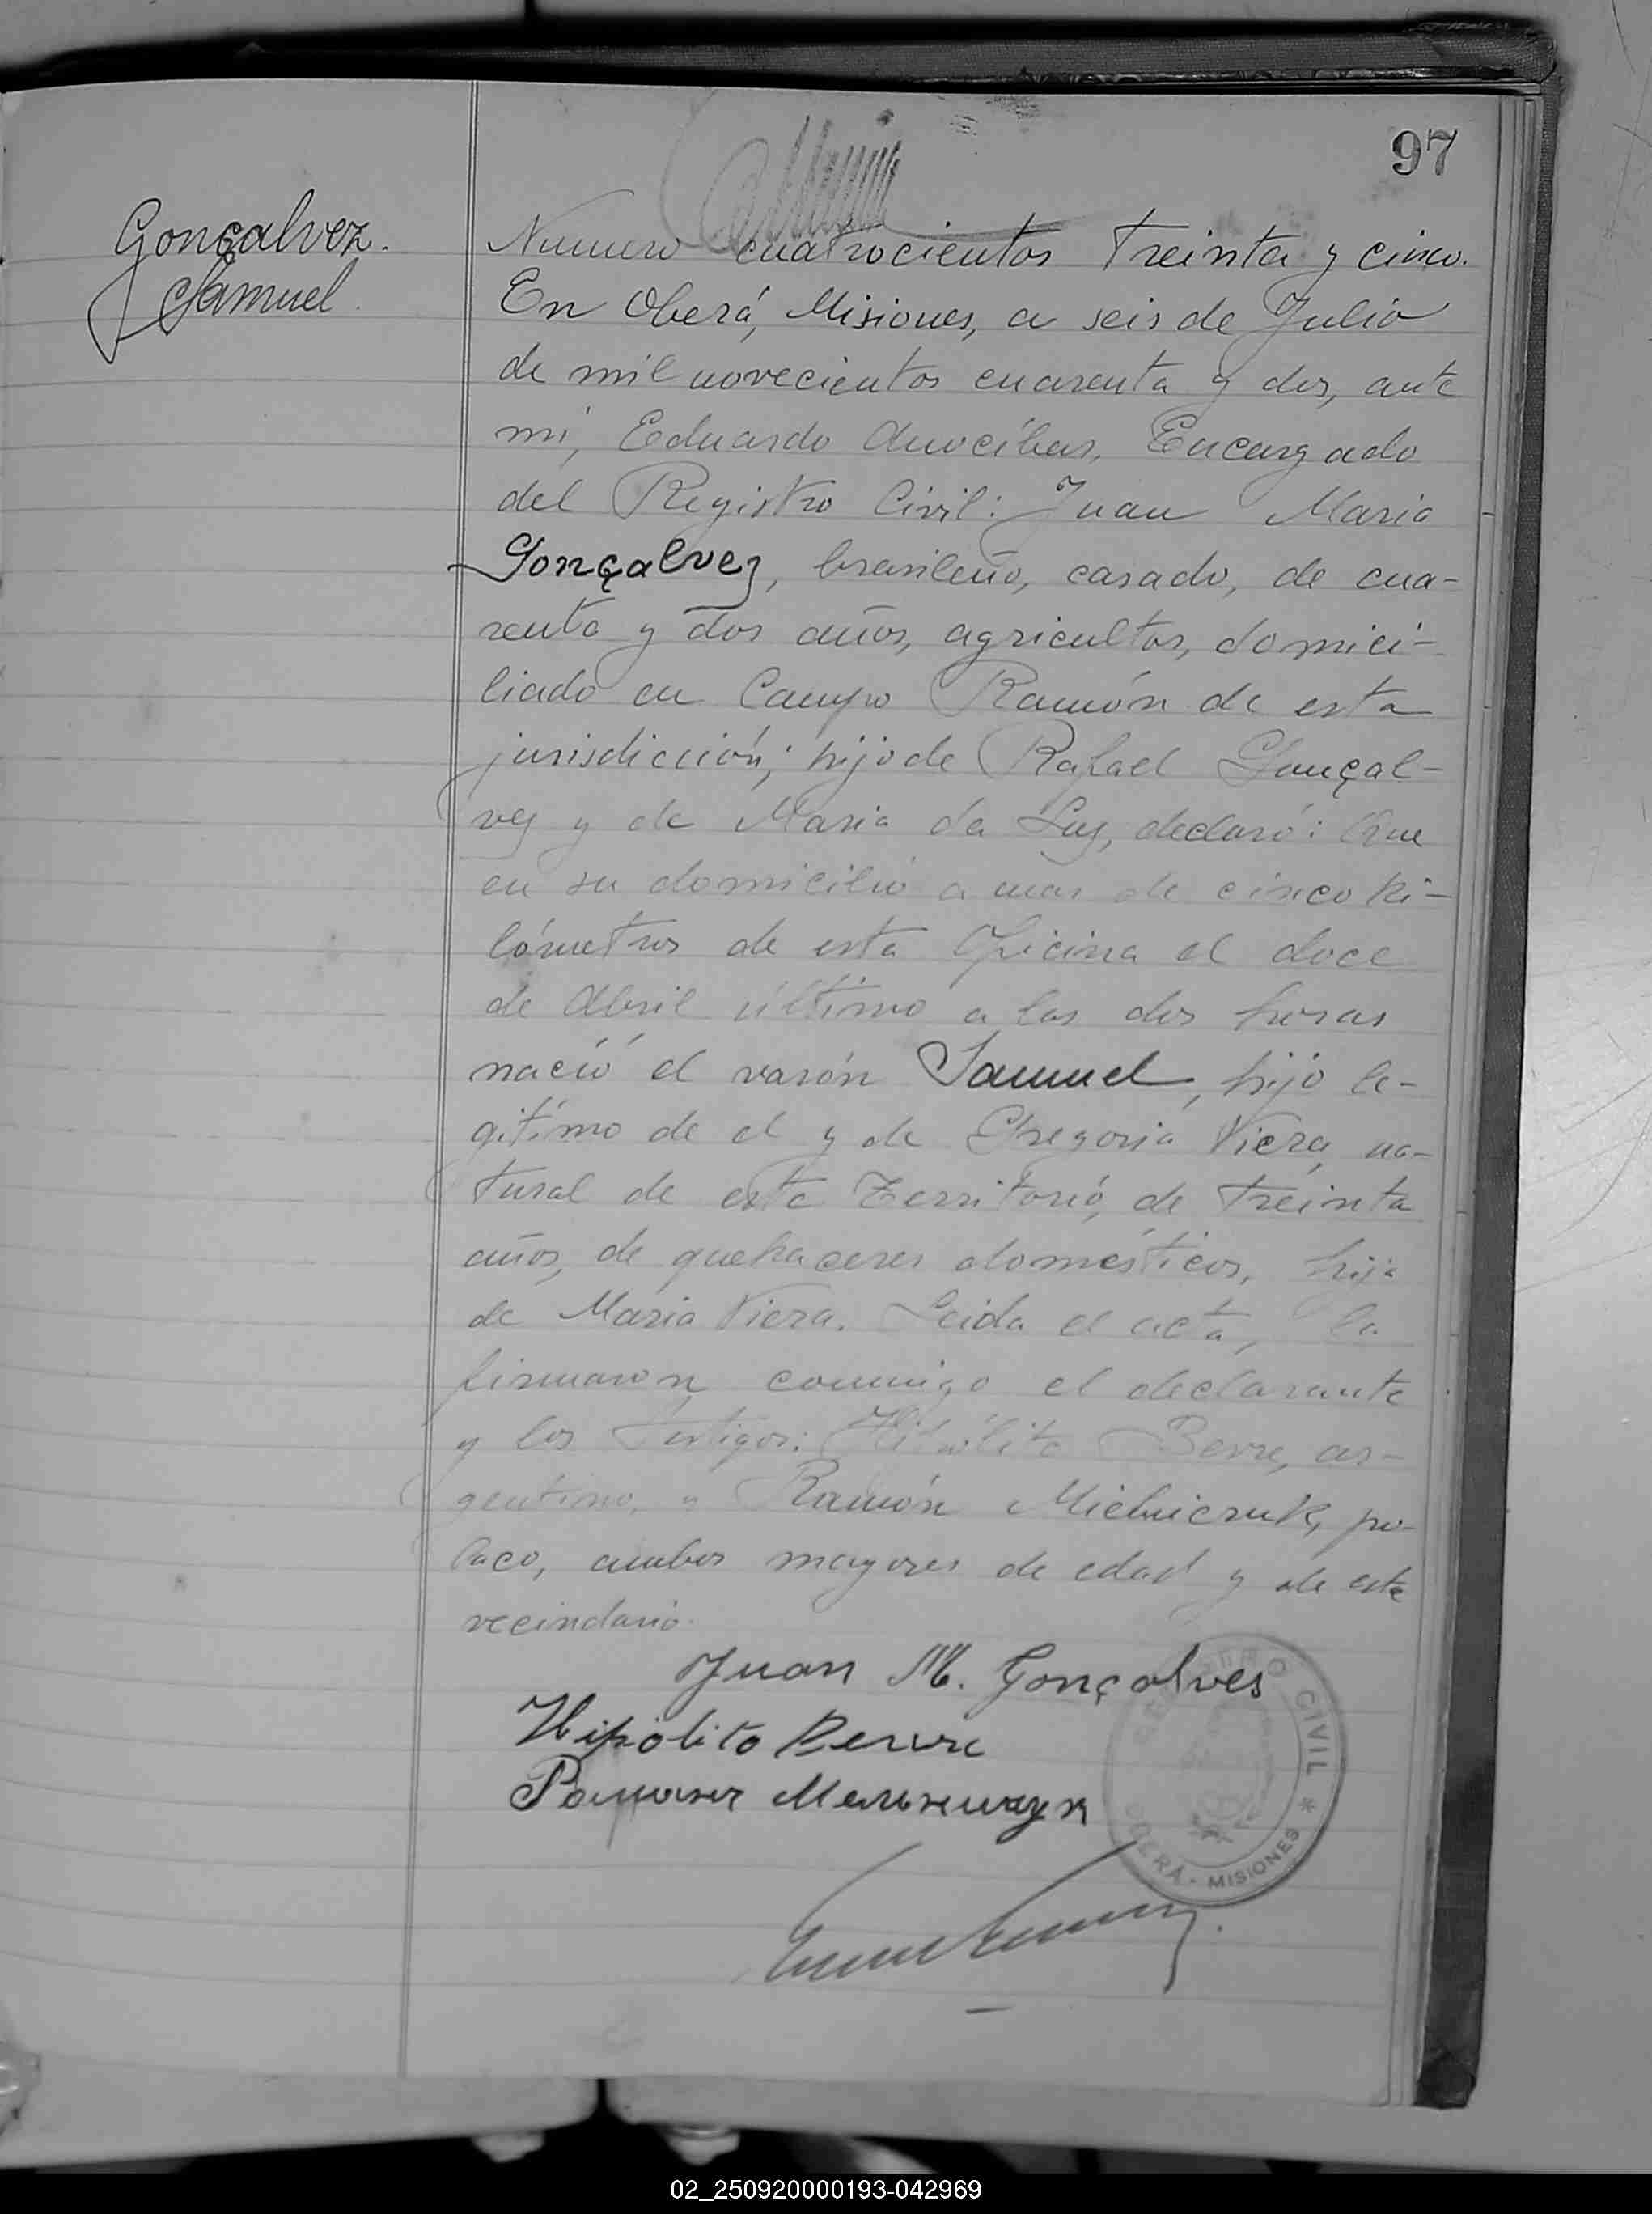 97
Gonçalvez.
Samuel.
Numero cuatrocientos treinta y cinco.
En Oberá, Misiones, a seis de Julio
de mil novecientos cuarenta y dos, ante
mi, Eduardo Anocíbar, Encargado
del Registro Civil: Juan Maria
Gonçalvez, brasileño, casado, de cua-
renta y dos años, agricultor, domici-
liado en Campo Ramón de esta
jurisdicción; hijo de Rafael Gonçal-
vez y de Maria da Luz, declaró: Que
en su domicilio a mas de cinco ki-
lómetros de esta Oficina el doce
de Abril último a las dos horas
nació el varón Samuel, hijo le-
gítimo de el y de Gregoria Viera, na-
tural de este Territorio, de treinta
años, de quehaceres domésticos, hija
de Maria Viera. Leida el acta, la
firmaron conmigo el declarante
y los testigos: Hipólito Berre, ar-
gentino, y Ramón Mielniczuk, po-
laco, ambos mayores de edad y de este
vecindario.
Juan M. Gonçalves
Hipólito
REGISTRO CIVIL * OBERÁ - MISIONES
02_250920000193-042969